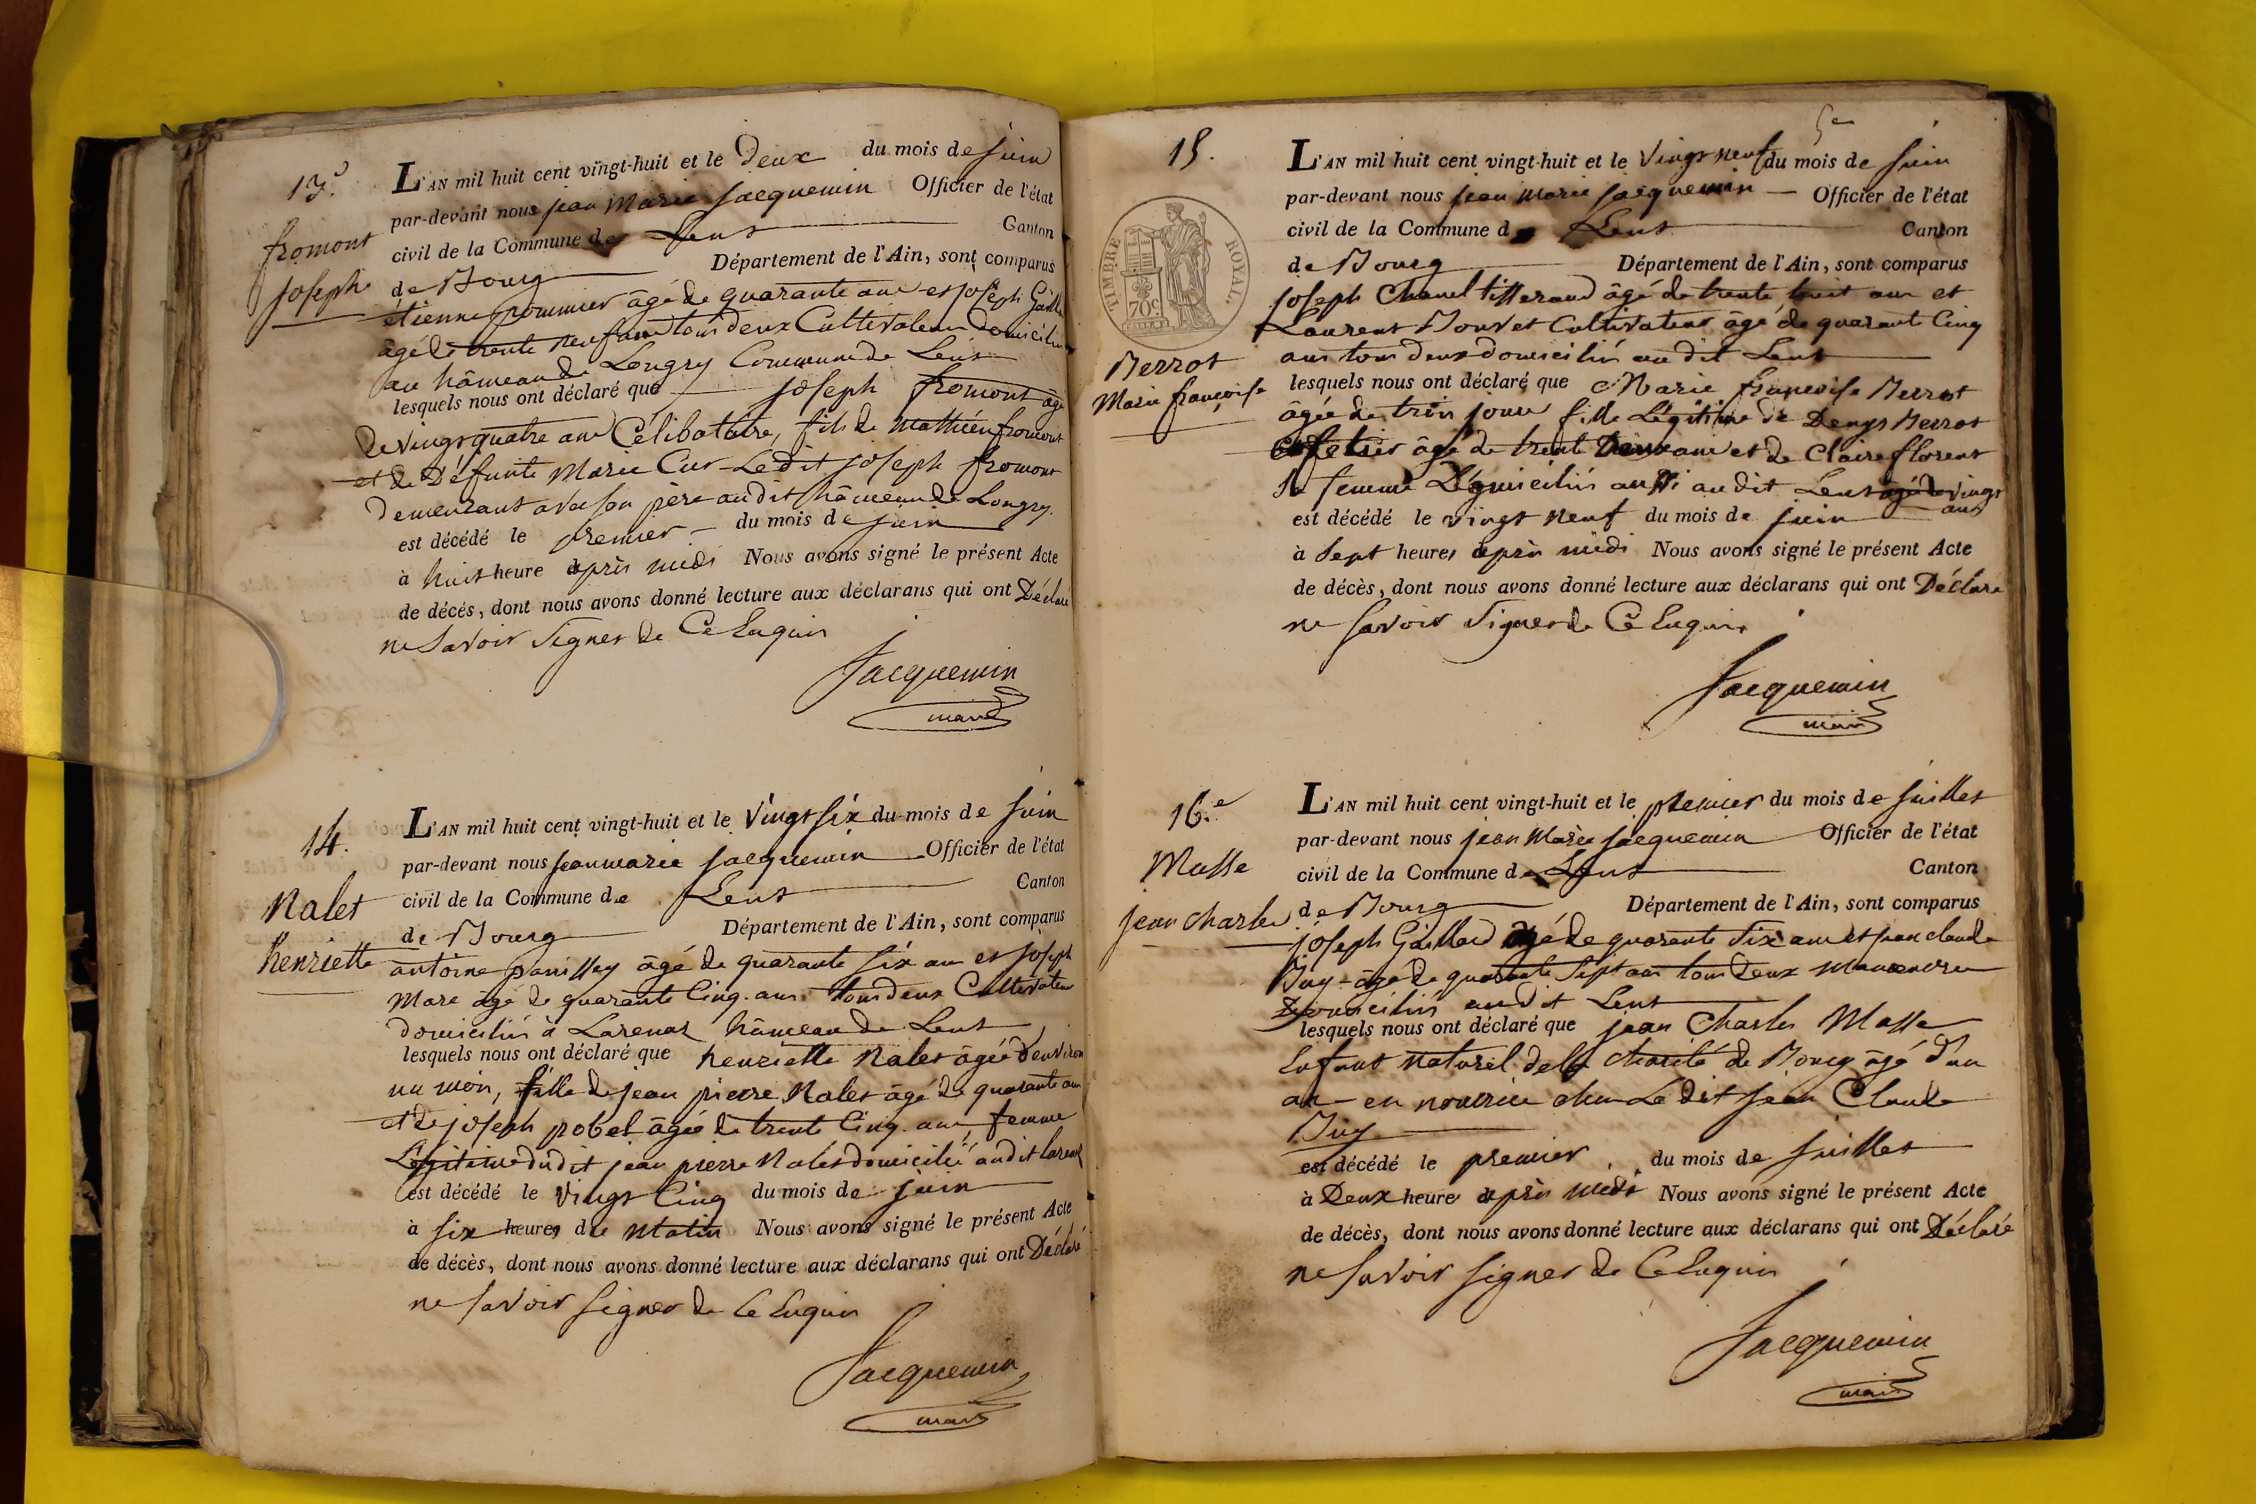 13.e
fromont
joseph
L'AN mil huit cent vingt-huit et le deux du mois de juin
par-devant nous jean Marie Jacquemin Officier de l'état
civil de la Commune de Lent Canton
de Bourg Département de l'Ain, sont comparus
étienne pommier âgé de quarante ans et joseph
âgé de trente neuf ans tous deux Cultivateurs domiciliés
au hâmeau de Longry Commune de Lent
lesquels nous ont déclaré que joseph fromont âgé
de vingt quatre ans Célibataire, fils de Mathieu fromont
et de Défunte Marie Cur Le dit joseph fromont
demeurant avec son père au dit hâmeau de Longry.
est décédé le premier du mois de juin
à huit heure après midi Nous avons signé le présent Acte
de décès, dont nous avons donné lecture aux déclarans qui ont Déclaré
ne Savoir Signer de Ce Enquis
Jacquemin
maire
14.
Nalet
henriette
L'AN mil huit cent vingt-huit et le Vingt six du mois de juin
par-devant nous jean marie jacquemin Officier de l'état
civil de la Commune de Lent Canton
de Bourg Département de l'Ain, sont comparus
antoine panissey âgé de quarante six ans et joseph
Mare âgé de quarante Cinq ans tous deux Cultivateurs
domiciliés à Larenas hâmeau de Lent
lesquels nous ont déclaré que henriette Nalet âgée d'environ
un mois, fille de jean pierre Nalet âgé de quarante ans
et de joseph pobel âgée de trente Cinq ans, femme
Légitime du dit jean pierre Nalet domicilié au dit
est décédé le Vingt Cinq du mois de juin
à six heures du Matin Nous avons signé le présent Acte
de décès, dont nous avons donné lecture aux déclarans qui ont Déclaré
ne Savoir signer de Ce Enquis
Jacquemin
maire
5e
15.
TIMBRE ROYAL
70c
Berrot
Marie françoise
L'AN mil huit cent vingt-huit et le Vingt neuf du mois de juin
par-devant nous jean marie jacquemin Officier de l'état
civil de la Commune de Lent Canton
de Bourg Département de l'Ain, sont comparus
joseph Chanel tisserand âgé de trente huit ans et
Laurent Bouvet Cultivateur âgé de quarante Cinq
ans tous deux domiciliés au dit Lent
lesquels nous ont déclaré que Marie françoise Berrot
âgée de trois jours fille Légitime de Denys Berrot
âgé de trente Deux ans et de Claire florent
Sa femme Domiciliés aussi au dit Lent âgée de vingt
ans
est décédé le vingt neuf du mois de juin
à Sept heures après midi Nous avons signé le présent Acte
de décès, dont nous avons donné lecture aux déclarans qui ont Déclaré
ne Savoir Signer de Ce Enquis
Jacquemin
maire
16.e
Masse
jean charles
L'AN mil huit cent vingt-huit et le premier du mois de juillet
par-devant nous jean Marie jacquemin Officier de l'état
civil de la Commune de Lent Canton
de Bourg Département de l'Ain, sont comparus
joseph Gaillard âgé de quarante six ans et jean claude
âgé de quarante Sept ans tous Deux Manoeuvres
Domiciliés au dit Lent
lesquels nous ont déclaré que jean Charles Masse
Enfant Naturel de la charité de Bourg âgé d'un
an en nourrice chez Le dit jean Claude
est décédé le premier du mois de juillet
à Deux heures après Midi Nous avons signé le présent Acte
de décès, dont nous avons donné lecture aux déclarans qui ont Déclaré
ne Savoir signer de Ce Enquis
Jacquemin
maire